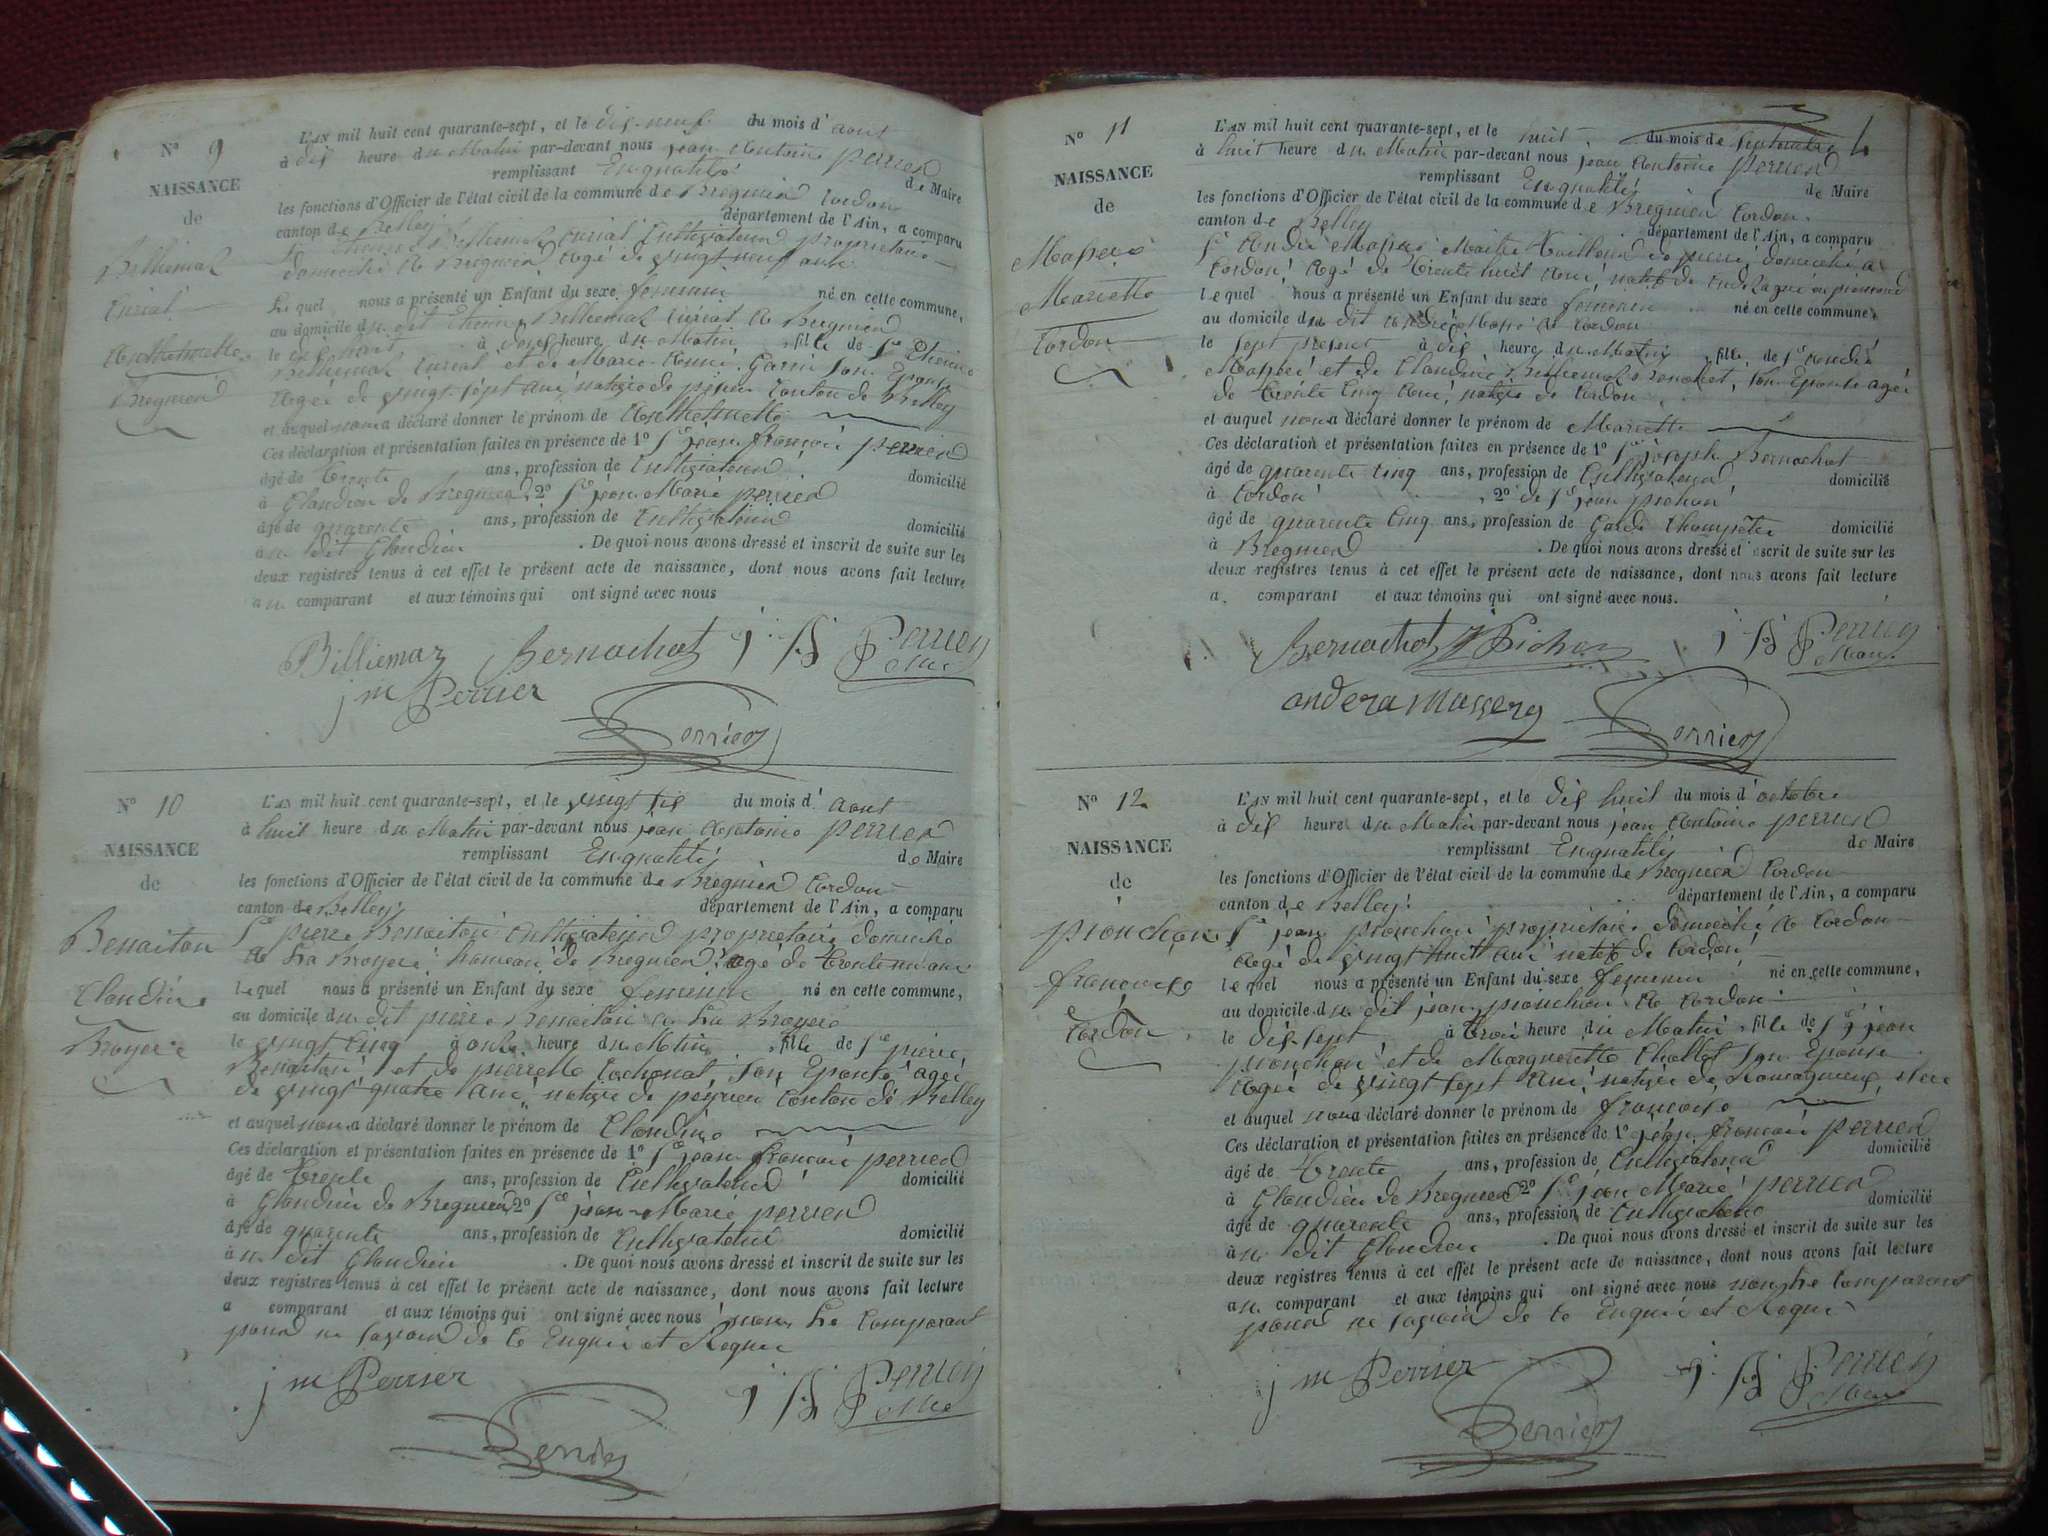 N° 9
NAISSANCE
de
Billiemaz
curiat
Anthelmette
Bregnier
L'AN mil huit cent quarante-sept, et le dix-neuf du mois d'aout
à dix heure du Matin par-devant nous jean Antoine perrier
remplissant En qualité de Maire
les fonctions d'Officier de l'état civil de la commune de Bregnier Cordon
canton de Belley département de l'Ain, a comparu
Billiemaz curiat Cultivateur proprietaire
domicilié a Bregnier Agé de vingt neuf ans
Lequel nous a présenté un Enfant du sexe feminin né en cette commune,
au domicile du dit Etienne Billiemaz curiat a Bregnier
le dix huit à onze heure du Matin, fille de Sr Etienne
Billiemaz curiat et de Marie son Epouse
Agée de vingt sept ans native de canton de Belley
et auquel nous a déclaré donner le prénom de Anthelmette
Ces déclaration et présentation faites en présence de 1° Sr jean françois perrier
âgé de trente ans, profession de Cultivateur domicilié
à Glandieu de Bregnier, 2° Sr jean Marie perrier
âgé de quarente ans, profession de Cultivateur domicilié
à u dit Glandieu. De quoi nous avons dressé et inscrit de suite sur les
deux registres tenus à cet effet le présent acte de naissance, dont nous avons fait lecture
au comparant et aux témoins qui ont signé avec nous
Billiemaz Bernachot j. A Perrier
jm Perrier Maire
Perrier
N° 10
NAISSANCE
de
Benaiton
Claudine
Broyere
L'AN mil huit cent quarante-sept, et le vingt six du mois d'aout
à huit heure du Matin par-devant nous jean Antoine perrier
remplissant En qualité de Maire
les fonctions d'Officier de l'état civil de la commune de Bregnier Cordon
canton de Belley département de l'Ain, a comparu
Sr pierre Benaiton Cultivateur proprietaire domicilié
a La Broyere hameau de Bregnier agé de trente un ans
lequel nous a présenté un Enfant du sexe feminin né en cette commune,
au domicile du dit pierre Benaiton a La Broyere
le vingt cinq à onze heure du Matin, fille de Sr pierre
Benaiton et de pierrette Cochonat son Epouse agée
de vingt quatre ans, native de peyrieu Canton de Belley
et auquel nous a déclaré donner le prénom de Claudine
Ces déclaration et présentation faites en présence de 1° Sr jean françois perrier
âgé de trente ans, profession de Cultivateur domicilié
à Glandieu de Bregnier 2° Sr jean Marie perrier
âgé de quarente ans, profession de Cultivateur domicilié
à u dit Glandieu. De quoi nous avons dressé et inscrit de suite sur les
deux registres tenus à cet effet le présent acte de naissance, dont nous avons fait lecture
a comparant et aux témoins qui ont signé avec nous non Le Comparant
pour ne savoir de ce Enquis et Requis
jm Perrier j. A Perrier
Maire
Perrier
N° 11
NAISSANCE
de
Mariette
Cordon
L'AN mil huit cent quarante-sept, et le huit du mois de septembre
à huit heure du Matin par-devant nous jean Antoine perrier
remplissant En qualité de Maire
les fonctions d'Officier de l'état civil de la commune de Bregnier Cordon.
canton de Belley département de l'Ain, a comparu
Sr André Maitre tailleur de pierre domicilié a
Cordon Agé de trente huit ans natif de
lequel nous a présenté un Enfant du sexe feminin né en cette commune,
au domicile du dit André a Cordon
le sept present à dix heure du Matin, fille de Sr André
et de Claudine Billiemaz Bernachot, son Epouse agée
de trente cinq ans, native de Cordon
et auquel nous a déclaré donner le prénom de Mariette
Ces déclaration et présentation faites en présence de 1° Sr joseph Bernachot
âgé de quarente cinq ans, profession de Cultivateur domicilié
à Cordon, 2° de Sr jean pichon
âgé de quarente cinq ans, profession de Garde Champetre domicilié
à Bregnier. De quoi nous avons dressé et inscrit de suite sur les
deux registres tenus à cet effet le présent acte de naissance, dont nous avons fait lecture
a comparant et aux témoins qui ont signé avec nous.
Bernachot J Pichon j. A Perrier
Maire
andera massera
Perrier
N° 12
NAISSANCE
de
pionchon
françoise
Cordon
L'AN mil huit cent quarante-sept, et le dix huit du mois d'octobre
à dix heure du Matin par-devant nous jean Antoine perrier
remplissant En qualité de Maire
les fonctions d'Officier de l'état civil de la commune de Bregnier Cordon
canton de Belley département de l'Ain, a comparu
Sr jean pionchon proprietaire domicilié a Cordon
Agé de vingt huit ans natif de Cordon
lequel nous a présenté un Enfant du sexe feminin né en cette commune,
au domicile du dit jean pionchon a Cordon
le dix-sept à trois heure du Matin, fille de Sr jean
pionchon et de Marguerette Challot son Epouse
Agée de vingt sept ans, native de Romagnieux, isere
et auquel nous a déclaré donner le prénom de françoise
Ces déclaration et présentation faites en présence de 1° jean françois perrier
âgé de trente ans, profession de Cultivateur domicilié
à Glandieu de Bregnier 2° Sr jean Marie perrier
âgé de quarente ans, profession de Cultivateur domicilié
à u dit Glandieu. De quoi nous avons dressé et inscrit de suite sur les
deux registres tenus à cet effet le présent acte de naissance, dont nous avons fait lecture
au comparant et aux témoins qui ont signé avec nous non le Comparant
pour ne savoir de ce Enquis et Requis
jm Perrier j. A Perrier
Maire
Perrier